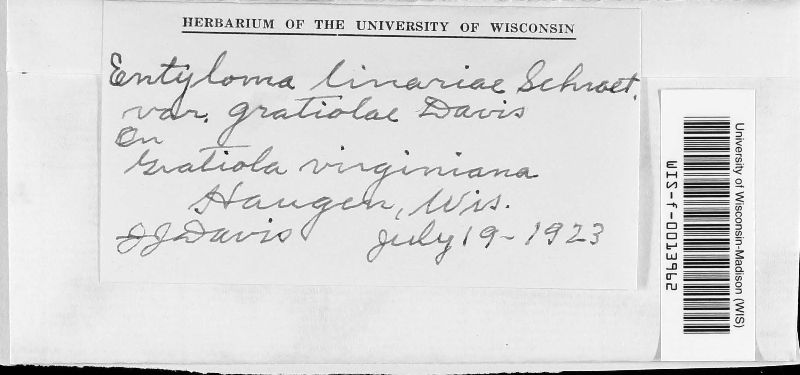 HERBARIUM OF THE UNIVERSITY OF WISCONSIN
Entyloma linariae Schroet.
var. gratiolae Davis
On
Gratiola virginiana
Haugen, Wis.
JJ Davis July 19-1923
University of Wisconsin-Madison (WIS)
WIS-f-0013962